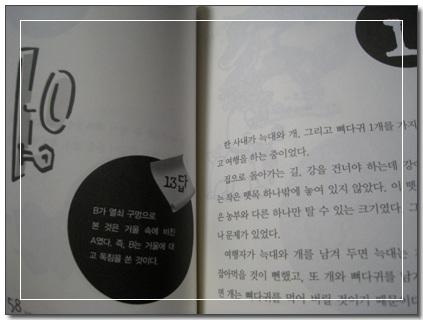 13답
B가 열쇠 구멍으로
본 것은 거울 속에 비친
A였다. 즉, B는 거울에 대
고 독침을 쏜 것이다.
58
1
한 사내가 늑대와 개, 그리고 뼈다귀 1개를 가지
고 여행을 하는 중이었다.
집으로 돌아가는 길, 강을 건너야 하는데 강
는 작은 뗏목 하나밖에 놓여 있지 않았다. 이 뗏
은 농부와 다른 하나만 탈 수 있는 크기였다. 그
나 문제가 있었다.
여행자가 늑대와 개를 남겨 두면 늑대는
잡아먹을 것이 뻔했고, 또 개와 뼈다귀를 남
면 개는 뼈다귀를 먹어 버릴 것이기 때문이다